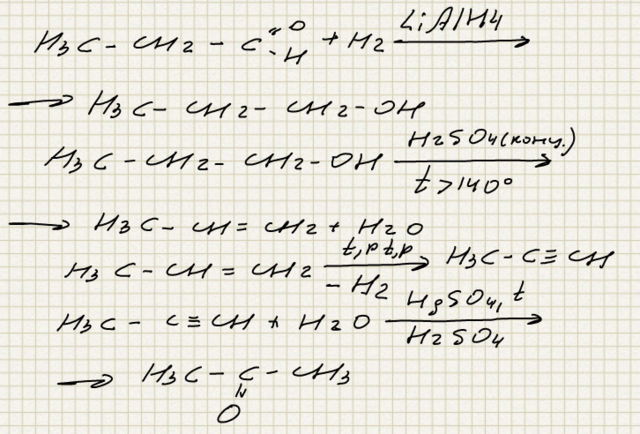 H₃C - CH₂ - C =O -H + H₂ LiAlH4 →
→ H₃C - CH₂ - CH₂ - OH
H₃C - CH₂ - CH₂ - OH H₂SO₄(конц.) t>140° →
→ H₃C - CH = CH₂ + H₂O
H₃C - CH = CH₂ t,p t,p - H₂ → H₃C - C ≡ CH
H₃C - C ≡ CH + H₂O HgSO₄, t H₂SO₄ →
→ H₃C - C - CH₃
O